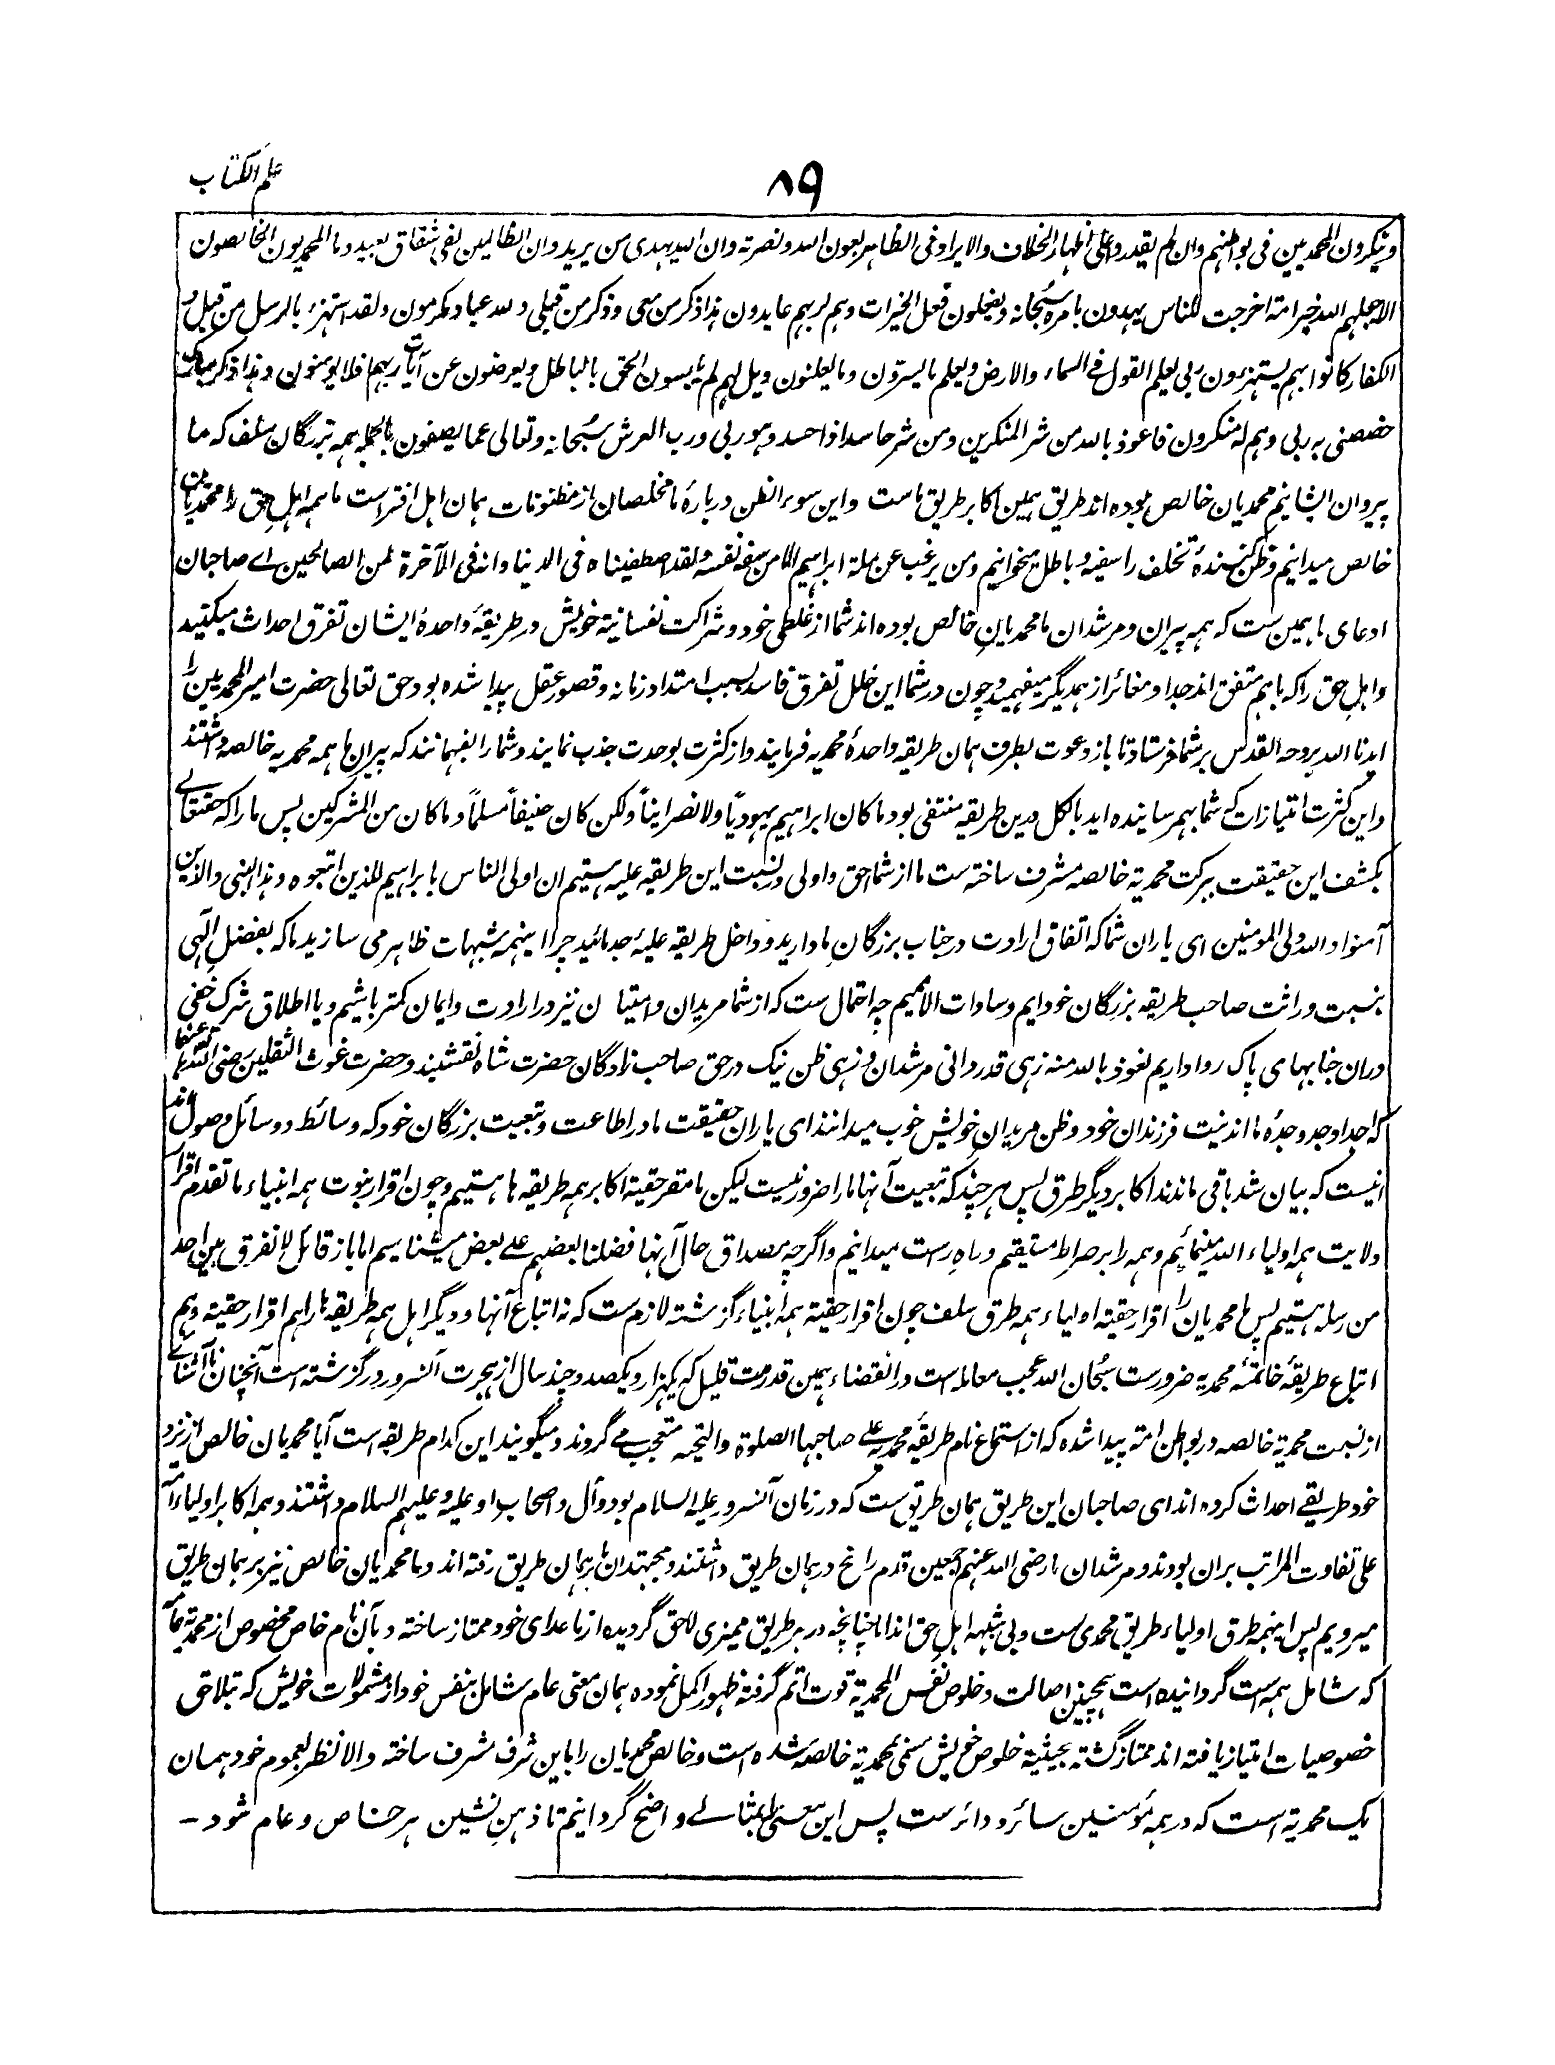 علم الکتاب
۸۹
وینکرون المحمدیین فی بواطنهم وان لم یقدروا علی اظهار الخلاف والایراد فی الظاهر بعون الله ونصرته وان الله یهدی من یرید وان الظالمین لفی شقاق بعید وما المحمدیون الخالصون
الا جعلهم الله خیر امة اخرجت للناس یهدون بامره سبحانه ویفعلون فعل الخیرات وهم لربهم عابدون هذا ذکر من معی وذکر من قبلی ولله عباد مکرمون ولقد استهزئ بالرسل من قبل و
الکفار کانوا بهم یستهزءون ربی یعلم القول فی السماء والارض ویعلم ما یسرون وما یعلنون ویل لهم لم یلبسون الحق بالباطل ویعرضون عن آیات ربهم افلا یومنون وهذا ذکر مبارک
خصصنی به ربی وهم له منکرون فاعوذ بالله من شر المنکرین ومن شر حاسد اذا حسد وهو ربی ورب العرش سبحانه وتعالی عما یصفون بالجمله همه بزرگان سلف که ما
پیروان ایشانیم محمدیان خالص بوده اند طریق همین اکابر طریق ماست واین سوء الظن دربارهٔ ما مخلصان از مظنونات همان اهل افتراست ما همه اهل حق را محمدیان
خالص میدانیم وظن کنندهٔ تخلف را سفیه و باطل میخوانیم ومن یرغب عن ملة ابراهیم الا من سفه نفسه ولقد اصطفیناه فی الدنیا وانه فی الآخرة لمن الصالحین اے صاحبان
ادعای ما همین ست که همه پیران ومرشدان ما محمدیان خالص بوده اند شما از غلطی خود وشراکت نفسانیه خویش در طریقهٔ واحدهٔ ایشان تفرق احداث میکنید
واهل حق را که باهم متفق اند جدا ومغائر از همدیگر میفهمید وچون در شما این خلل تفرق فاسد بسبب امتداد زمانه وقصور عقل پیدا شده بود حق تعالی حضرت امیر المحمدیین را
ایدنا الله بروحه القدس بر شما فرستاد تا باز دعوت بطرف همان طریقه واحدهٔ محمدیه فرمایند واز کثرت بوحدت جذب نمایند وشما را بفهمانند که پیران ما همه محمدیه خالصه داشتند
واین کثرت امتیازات که شما بهم رسانیده اید بالکل درین طریقه منتفی بود ما کان ابراهیم یهودیًا ولا نصرانیًا ولکن کان حنیفاً مسلماً وما کان من المشرکین پس ما را که حقتعالے
بکشف این حقیقت ببرکت محمدیه خالصه مشرف ساخته ست ما از شما احق واولی در نسبت این طریقه علیه هستیم ان اولی الناس بابراهیم للذین اتبعوه وهذا النبی والذین
آمنوا والله ولی المومنین ای یاران شما که اتفاق ارادت در جناب بزرگان ما دارید وداخل طریقه علیهٔ جد مائید چرا اینهمه شبهات ظاهر می سازید ما که بفضل الهی
بنسبت وراثت صاحب طریقه بزرگان خودایم وسادات الاممیم چه احتمال ست که از شما مریدان نیز در ارادت وایمان کمتر باشیم ویا اطلاق شرک خفی
دران جنابهای پاک روا داریم نعوذ بالله منه زهی قدردانی مرشدان وزهی ظن نیک در حق صاحب زادگان حضرت شاه نقشبند وحضرت غوث الثقلین رضی الله عنهما
که جد اوجد وجدهٔ ما اند نیت فرزندان خود وظن مریدان خویش خوب میدانند ای یاران حقیقت ما در اطاعت وتبعیت بزرگان خود که وسائط ووسائل وصول اند
انیست که بیان شد باقی ماندند اکابر دیگر طرق پس هر چند که تبعیت آنها ما را ضرور نیست لیکن ما مقر حقیته اکابر همه طریقه ها هستیم وچون اقرار نبوت همه انبیاء ما تقدم اقرار
ولایت همه اولیاء الله مینمائیم وهمه را بر صراط مستقیم وراه راست میدانیم واگرچه بمصداق حال آنها فضلنا بعضهم علے بعض میشناسیم اما باز قائل لا نفرق بین احد
من رسله هستیم پس ما محمدیان را اقرار حقیته اولیاء همه طرق سلف چون اقرار حقیته همه انبیاء گزشته لازم ست که نه اتباع آنها ودیگر اهل همه طریقه ها را هم اقرار حقیته وهم
اتباع طریقهٔ خاتمهٔ محمدیه ضرورست سبحان الله عجب معامله است در انقضاء همین قدر مدت قلیل که یکهزار ویکصد وچند سال از هجرت آنسرور گزشته است آنچنان ناآشنائے
از نسبت محمدیه خالصه در بواطن امته پیدا شده که از استماع نام طریقهٔ محمدیه علی صاحبها الصلوة والتحیه متعجب مے گروند ومیگویند این کدام طریقه است آیا محمدیان خالص از نزد
خود طریقے احداث کرده اند ای صاحبان این طریق همان طریق ست که در زمان آنسرور علیه السلام بود وآل واصحاب او علیه وعلیهم السلام داشتند وهمه اکابر اولیاء امة
علی تفاوت المراتب بران بودند ومرشدان ما رضی الله عنهم اجمعین قدم راسخ در همان طریق داشتند ومجتهدان ما بهمان طریق رفته اند وما محمدیان خالص نیز بر همان طریق
میرویم پس اینهمه طرق اولیاء طریق محمدی ست وبی شبهه اهل حق اند اما چنانچه در هر طریق ممیزی لاحق گردیده از ماعدای خود ممتاز ساخته وبآن نام خاص مخصوص از محمدیه عامه
که شامل همه است گردانیده است همچنین اصالت وخلوص نفس المحمدیة قوت اتم گرفته ظهور اکمل نموده همان معنی عام شامل بنفس خود از مشمولات خویش که تبلاحق
خصوصیات امتیاز یافته اند ممتاز گشته بحیثیة خلوص خویش مسمی بمحمدیة خالصه شده است وخالص محمدیان را باین شرف مشرف ساخته والا نظر بعموم خود همان
یک محمدیة است که در همه مؤمنین سائر ودائرست پس این معنی را بمثالے واضح گردانیم تا ذهن نشین هر خاص وعام شود -